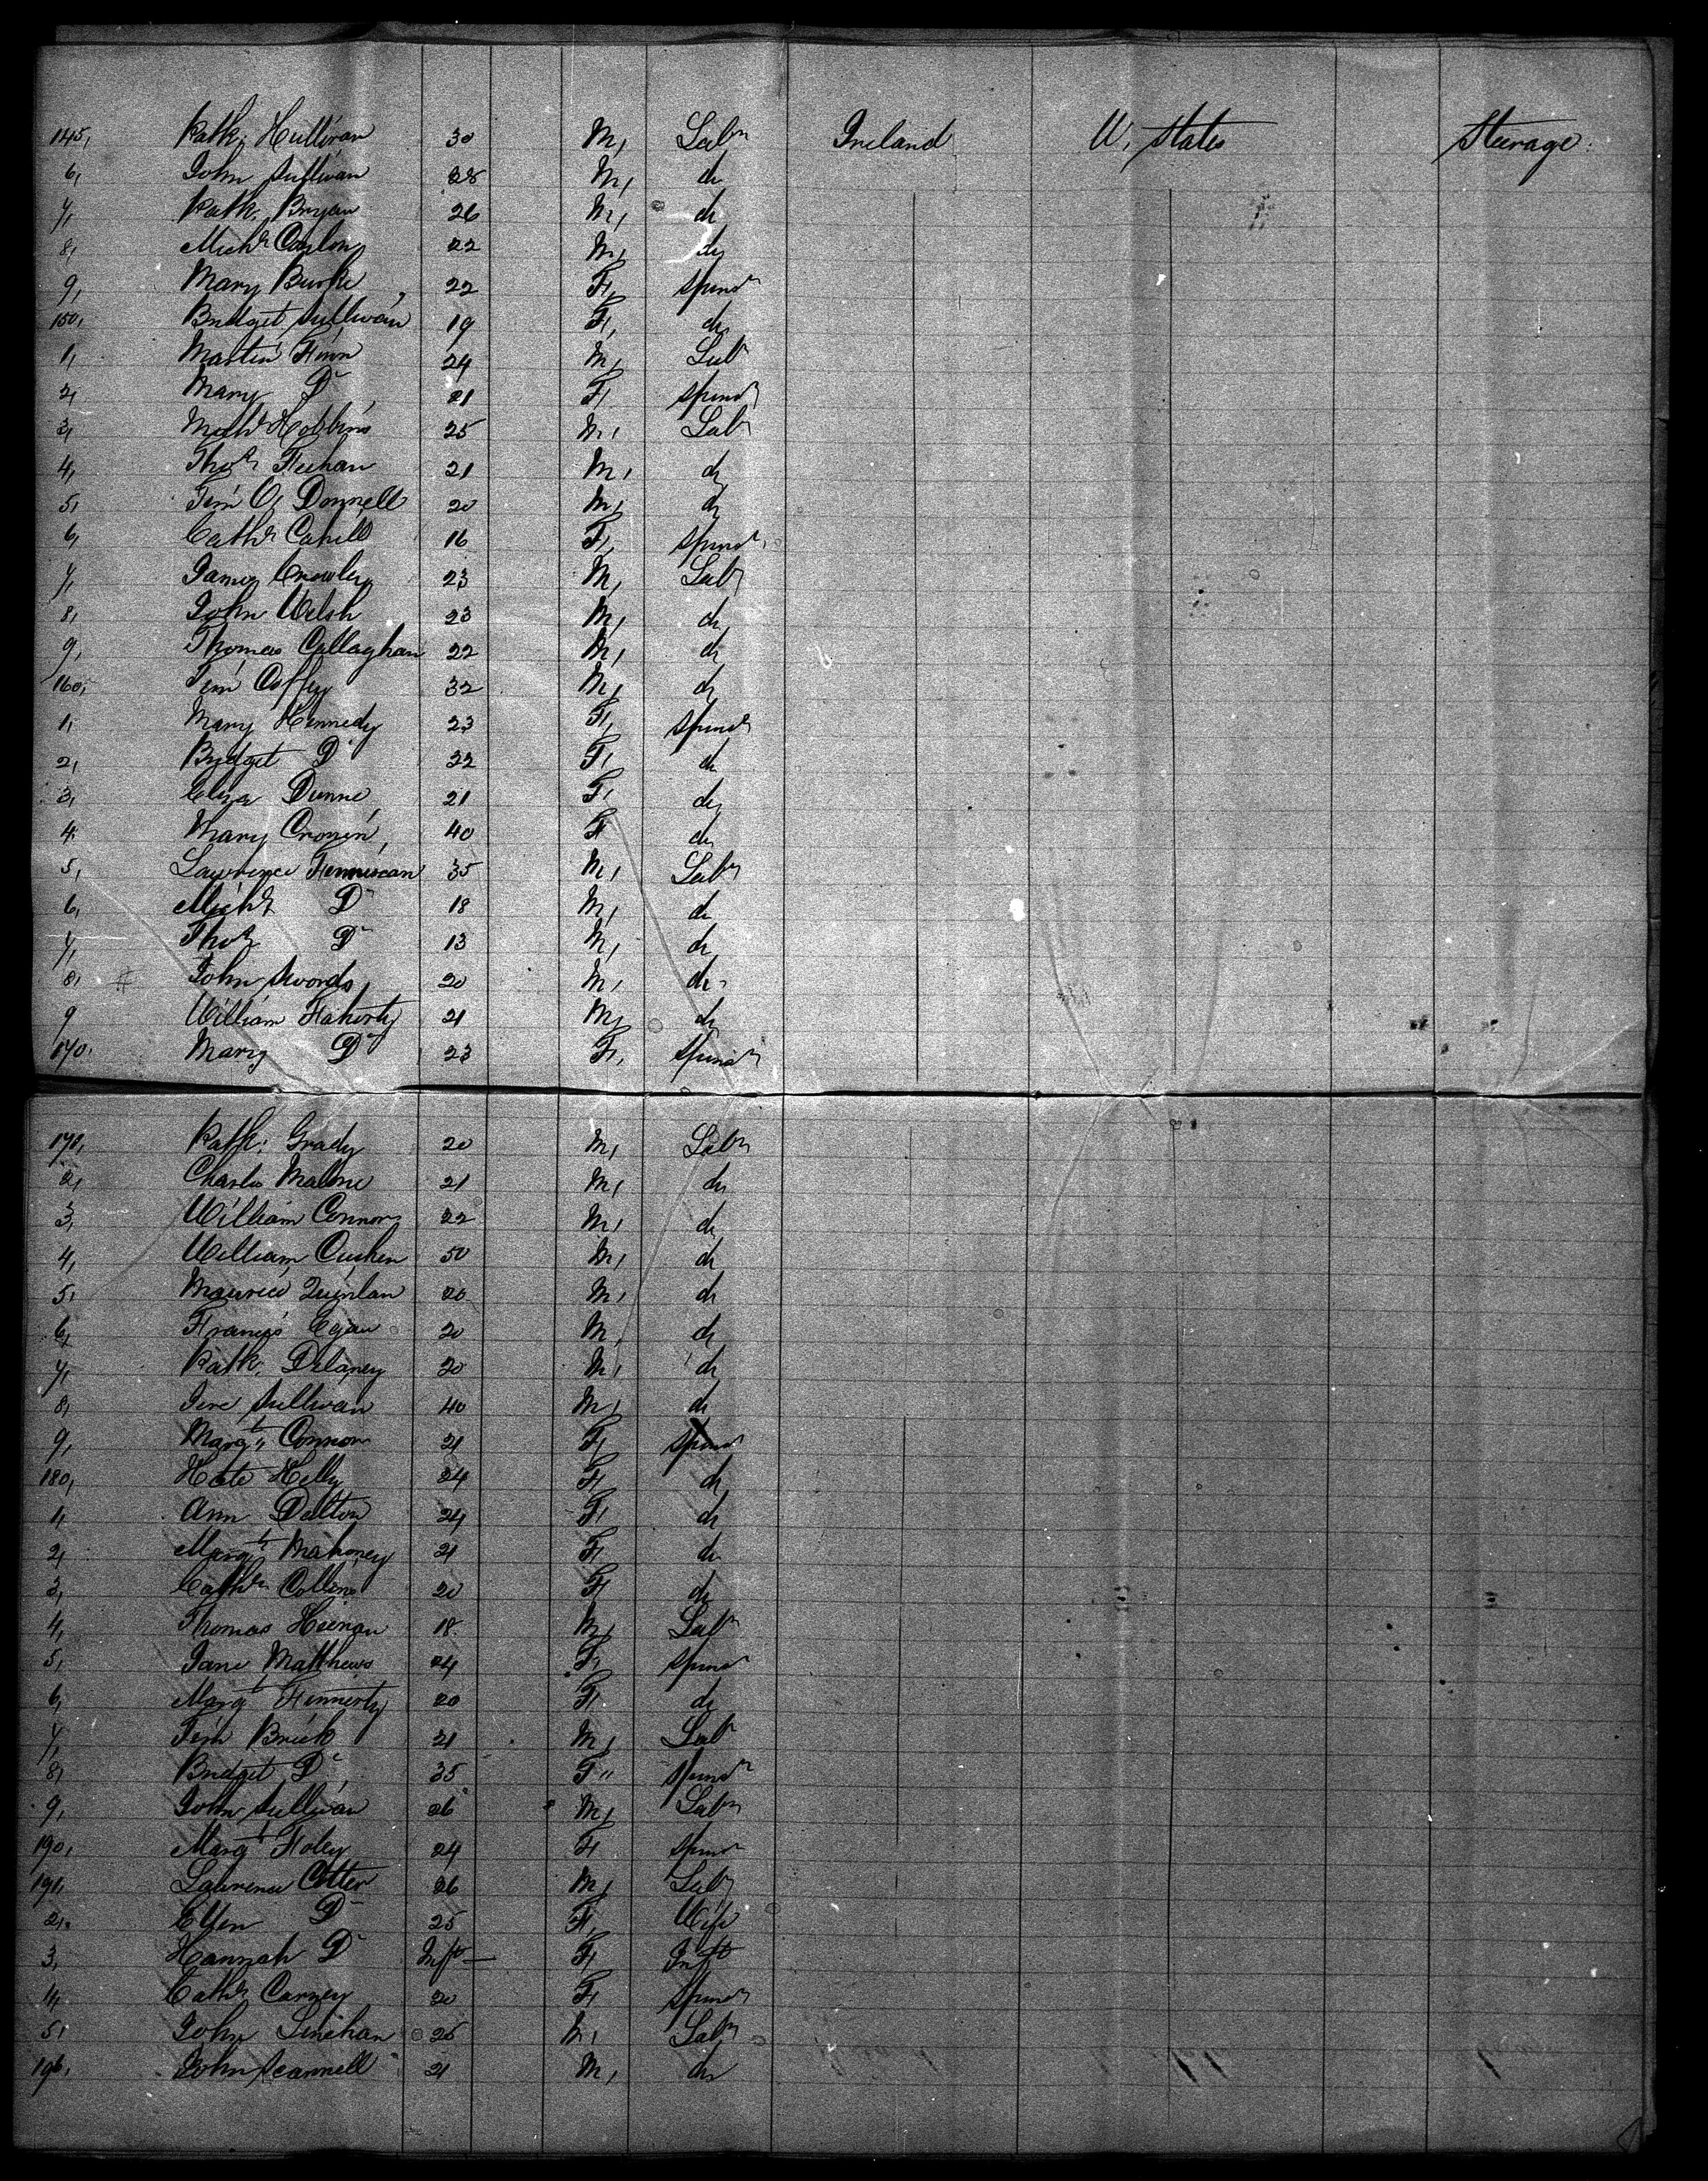 145, Patk. Hullivan 30 M, Labr Ireland U. States Steerage.
6, John Sullivan 28 M, do
7, Patk. Bryan 26 M, do
8, Michl Conlon 22 M, do
9, Mary Burke 22 F, Spinsr
150, Bridget Sullivan 19 F, do
1, Martin Finn 24 M, Labr
2, Mary Do 21 F, Spinsr
3, Hobbins 25 M, Labr
4, Thos Feehan 21 M, do
5, Tim O, Donnell 20 M, do
6, Cathr Cahill 16 F, Spinsr
7, James Crowley 23 M, Labr
8, John Welsh 23 M, do
9, Thomas Callaghan 22 M, do
160, Tim Coffey 32 M, do
1, Mary Kennedy 23 F, Spinsr
2, Bridget Do 22 F, do
3, Eliza Dunne 21 F, do
4, Mary Cronin 40 F do
5, Lawrence 35 M, Labr
6, Michl Do 18 M, do
7, Thos Do 13 M, do
8, John Swords 20 M, do
9 William Faherty 21 M, do
170, Mary Do 23 F, Spinsr
171, Patk. Grady 20 M, Labr
2, Charles Malone 21 M, do
3, William Connors 22 M, do
4, William Cushen 50 M, do
5, Maurice Quinlan 20 M, do
6, Francis Egan 20 M, do
7, Patk. Delaney 20 M, do
8, Jere Sullivan 40 M, do
9, Margt Connor 21 F, Spinsr
180, Kate Kelly 24 F, do
1, Ann Dalton 24 F, do
2, Margt Mahoney 21 F, do
3, Cathr Collins 20 F, do
4, Thomas Heenan 18 M, Labr
5, Jane Matthews 24 F, Spinsr
6, Margt Finnerty 20 F, do
7, Tim Brick 21 M, Labr
8, Bridget Do 35 F, Spinsr
9, John Sullivan 26 M, Labr
190, Margt Foley 24 F, Spinsr
191, Lawrence Cotter 26 M, Labr
2, Ellen Do 25 F, Wife
3, Hannah Do Inft F, Inft
4, Cathr Carney 20 F, Spinsr
5, John Linehan 25 M, Labr
196, John Scannell 21 M, do